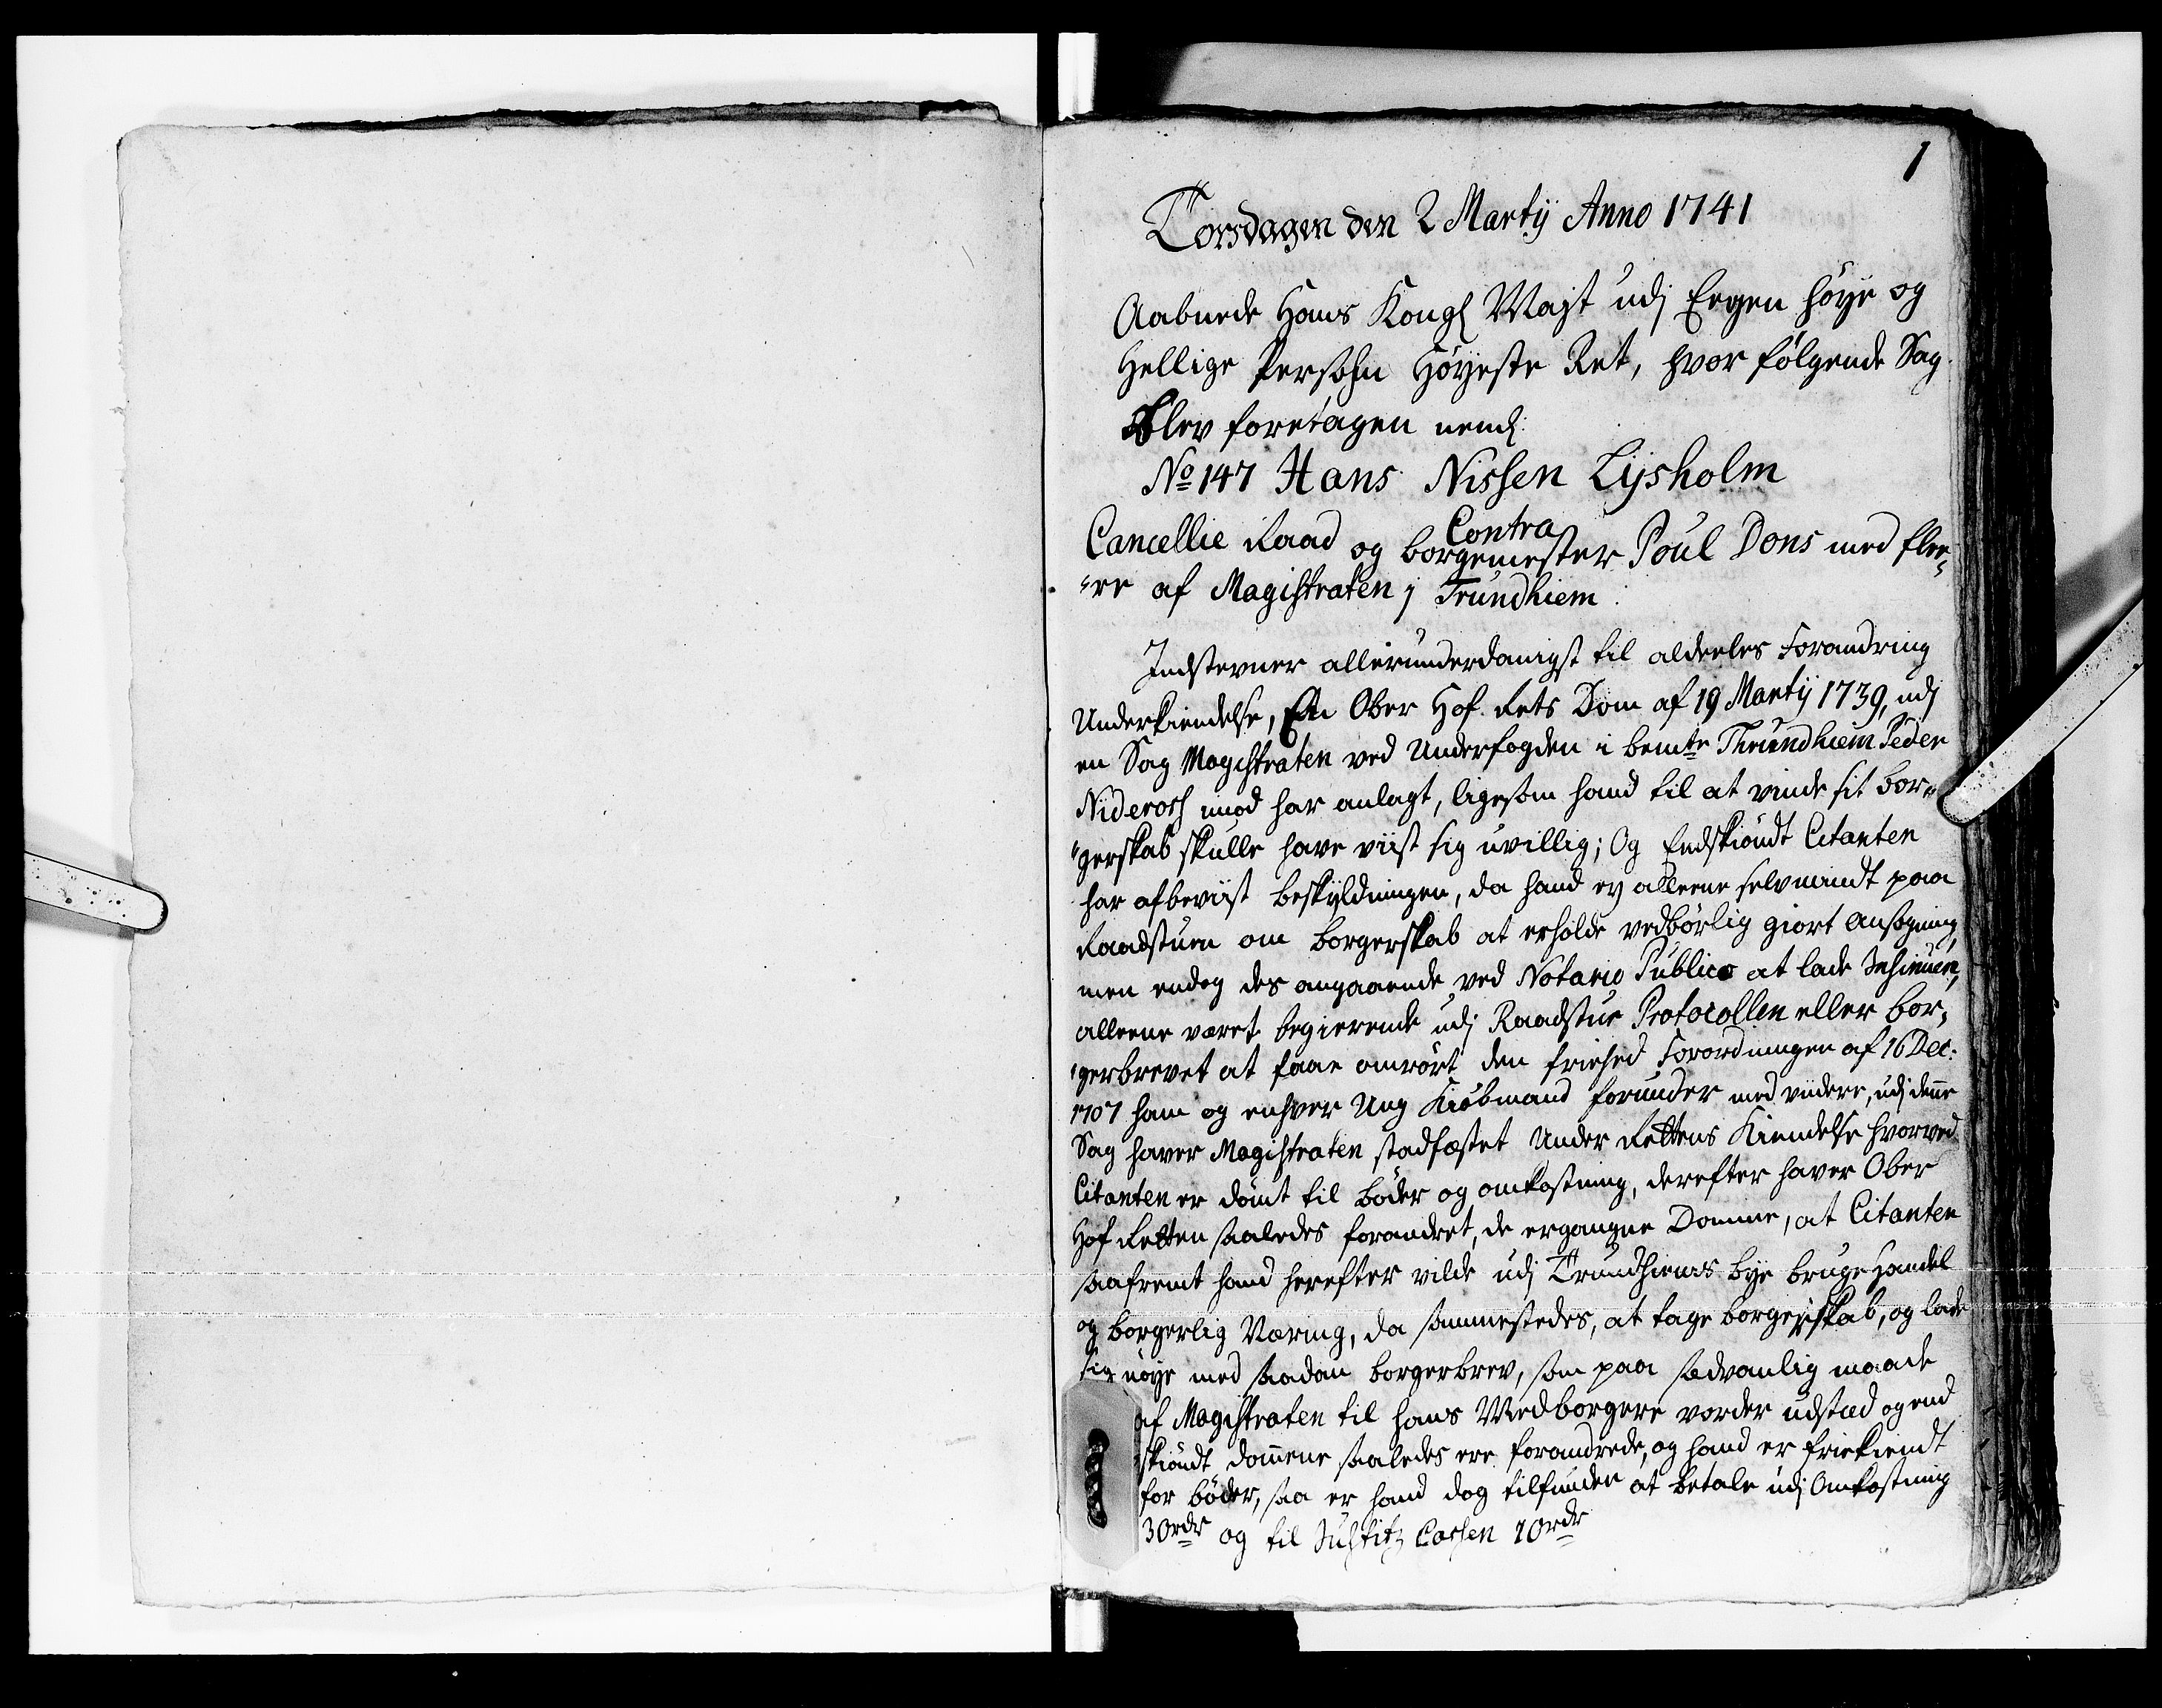 1
Torsdagen den 2 Martij Anno 1741
Aabnede Hans Kongl Mayt udj Eegen høye og
Hellige Persohn Høyeste Ret, hvor følgende Sag
Blev foretagen neml:
No 147 Hans Nissen Lysholm
Contra
Cancellie Raad og borgemester Poul Dons med flee-
"re af Magistraten j Trundhiem.
Indstevner allerunderdanigst til aldeeles Forandring
Underkiendelse, En Ober Hof Rets Dom af 19 Martij 1739, udj
en Sag Magistraten ved Underfogden i bemte Thrundhiem Peder
Niderosh imod har anlagt, ligesom hand til at vinde sit bor-
"gerskab skulle have viist sig uvillig; Og Endskiøndt Citanten
har afbeviist beskyldningen, da hand ey alleene selv mindt paa
Raadstuen om borgerskab at erholde vedbørlig giort Ansøgning,
men endog des angaaende ved Notario Publico at lade Insinuere,
alleene været begierende udj Raadstue Protocollen eller bor-
"gerbrevet at faae anrørt den friehed Forordningen af 16 Dec:
1707 ham og enhver Ung Kiøbmand forunder med viidere, udj denne
Sag haver Magistraten stadfæstet Under Rettens Kiendelse hvorved
Citanten er dømt til bøder og omkostning, derefter haver Ober
Hof Retten saaledes forandret, de ergangne Domme, at Citanten
saafremt hand herefter vilde udj Trundhiems bye bruge Handel
og borgerlig Næring, da sammestedes, at tage borgerskab, og lade
sig nøye med saadan borgerbrev, som paa sædvanlig maade
af Magistraten til hans Medborgere vorder udstæd og end
skiøndt dommene saaledes ere forandrede, og hand er friekiendt
for bøder, saa er hand dog tilfunden at betale udj Omkostning
30rdr og til Justitz Cassen 10rdr